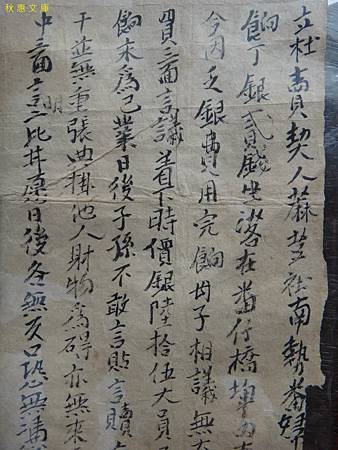 秋惠文庫
立杜賣契人蔴荳社南勢番婦
餉丁銀弍錢坐落在番仔橋埤
今因乏銀費用完餉母子相議無
買三面言議着下時價銀陸拾伍大員
餉末為己業日後子孫不敢言貼言贖
干並無重張典掛他人財物為碍亦無來
中三面言明二比甘愿日後各無反口恐無憑